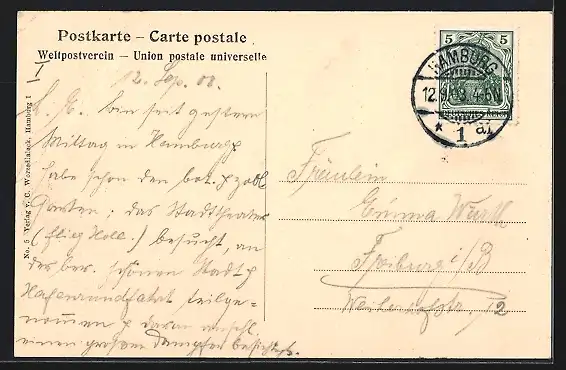 Postkarte – Carte postale
Weltpostverein – Union postale universelle
I
12. Sep. 08.
L. E. bin seit gestern
Mittag in Hamburg,
habe schon den bot. & zool.
Garten; das Stadttheater
(Flieg. Holl.) besucht, an
der ber. schönen Stadt &
Hafenrundfahrt teilge-
nommen & daran anschl.
einen grossen Dampfer besichtigt.
No. 5 Verlag v. C. Worzedialeck, Hamburg 1
5 5
HAMBURG
12.9.08. 4-5N
* 1 a *
Fräulein
Emma Wurth
Freiburg i/B
12